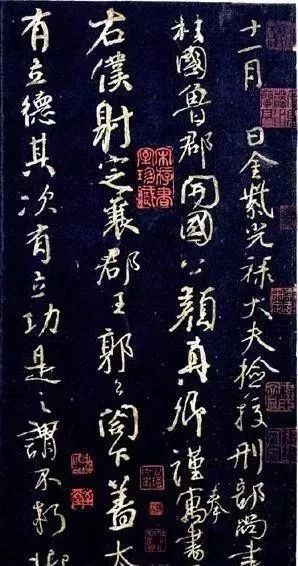 十一月 日金紫光祿大夫檢校刑部尚書
柱國魯郡開國公顏真卿謹奉寓書
右僕射定襄郡王郭公閤下蓋太
有立德其次有立功是之謂不朽抑
宋存書室珍藏